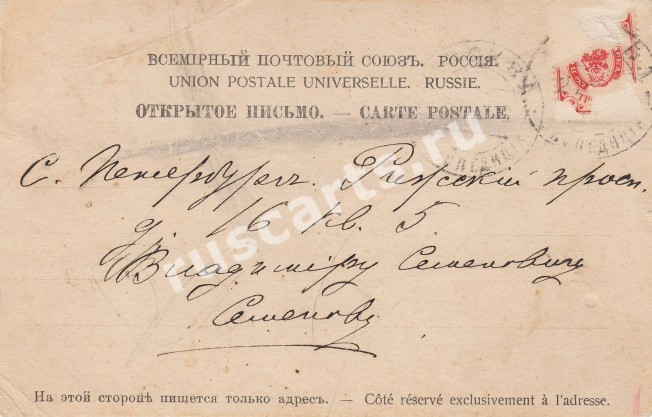 ВСЕМІРНЫЙ ПОЧТОВЫЙ СОЮЗЪ. РОССІЯ.
UNION POSTALE UNIVERSELLE. RUSSIE.
ОТКРЫТОЕ ПИСЬМО. — CARTE POSTALE.
С. Петербургъ. Рижскій просп.
д. 16 кв. 5.
Владимеру Семеновичу
Семенову
На этой сторонѣ пишется только адресъ. — Côté réservé exclusivement à l'adresse.
ruscarts.ru